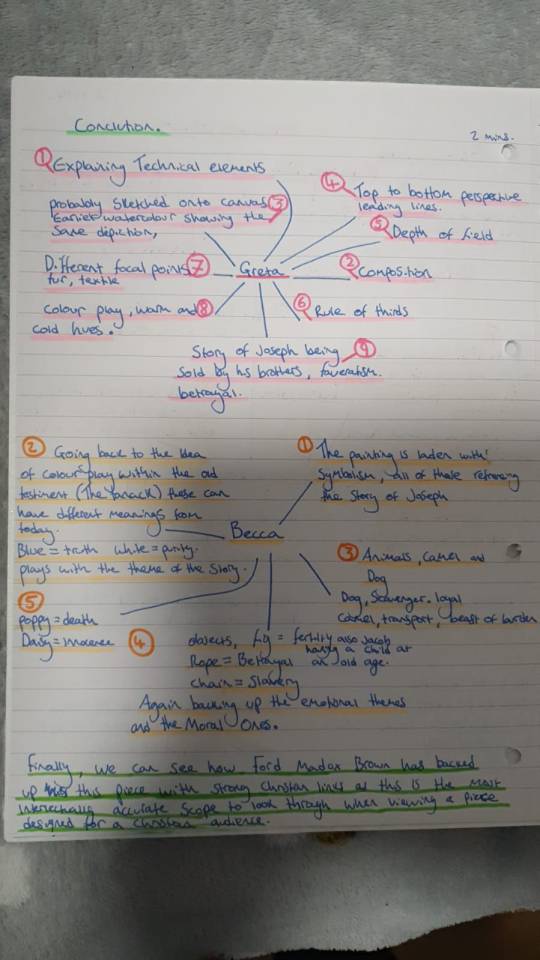 Conclution.
2 mins.
① Explaining Technical elements
probably sketched onto canvas ③
Earlier watercolour showing the
same depiction,
Different focal points ⑦
fur, textile
Colour play, warm and ⑧
cold hues.
Greta
④ Top to bottom perspective
leading lines.
⑤ Depth of field
② Composition
⑥ Rule of thirds
Story of Joseph being ⑨
sold by his brothers, faveratism.
betrayal.
② Going back to the Idea
of colour play within the old
testiment (The Tanack) these can
have different meanings from
today.
Blue = truth white = purity.
plays with the theme of the story.
① The painting is laden with
symbolism, all of these refrencing
the story of Joseph
Becca
③ Animals, Camel and
Dog
Dog, Scavenger. loyal
Camel, transport, beast of burden
⑤
poppy = death
Daisy = innocence
④ objects, fig = fertility also Jacob
having a child at
an old age.
Rope = Betrayal
chain = Slavery
Again backing up the emotional themes
and the Moral Ones.
Finally, we can see how Ford Madox Brown has backed
up this piece with strong Christian links as this is the most
accurate scope to look through when viewing a piece
designed for a Christian audience.